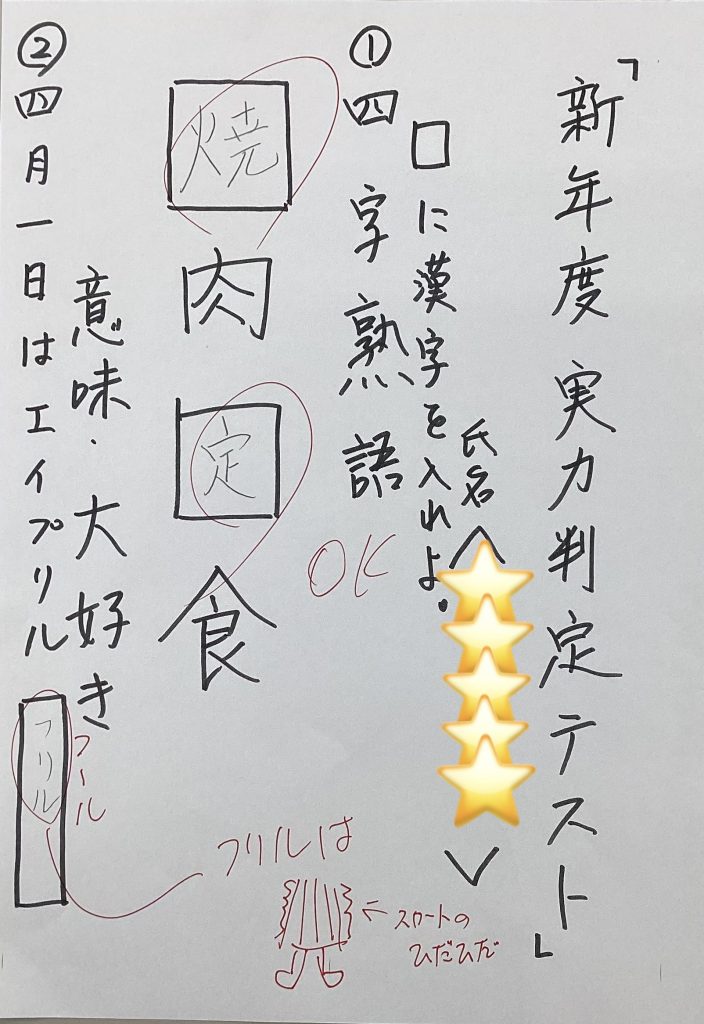 「新年度実力判定テスト」
氏名〈
〉
□に漢字を入れよ。
①四字熟語
OK
焼肉定食
意味・大好き
②四月一日はエイプリル
フリル
フール
フリルは
スカートの
ひだひだ